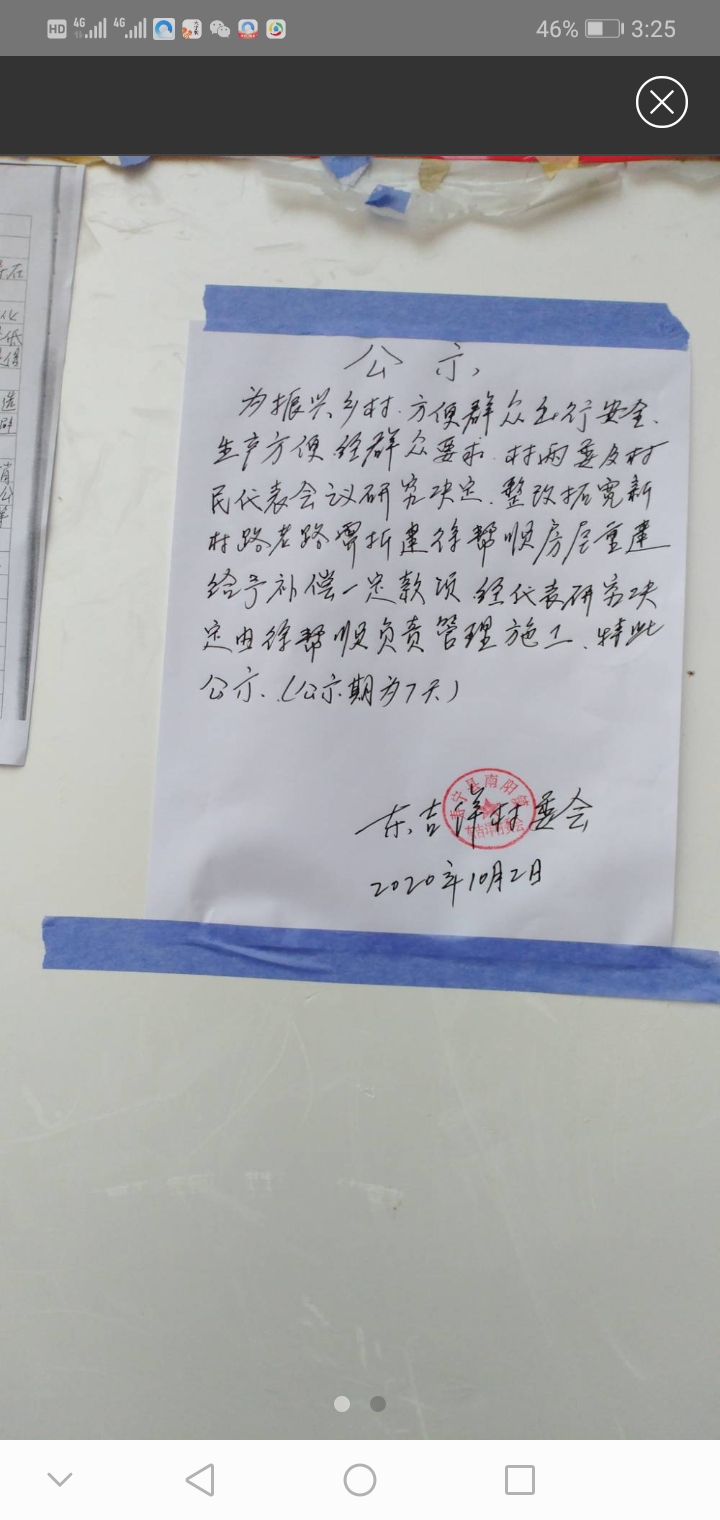 HD 4G 4G 46% 3:25
在
化
低
公
公示
为振兴乡村、方便群众出行安全、
生产方便、经群众要求、村两委及村
民代表会议研究决定、整改拓宽新
村路老路需拆建徐帮顺房屋重建
给予补偿一定款项、经代表研究决
定由徐帮顺负责管理施工、特此
公示、(公示期为7天)
寿宁县南阳镇
东吉洋村委会
东吉洋村委会
2020年10月2日